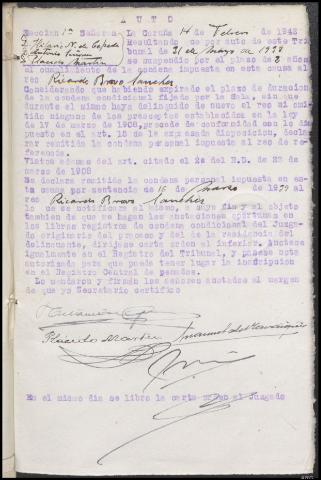 A U T O
Sección 1ª Señores La Coruña 14 de Febrero de 1942
Hilario N. de Cepeda
Antonio
Claudio Martín
Resultando que por auto de este Tri
bunal de 31 de Mayo de 1938
se suspendio por el plazo de 2
el cumplimiento de la condena impuesta en esta causa al
reo Ricardo Bravo Sanches
Considerando que habiendo expirado el plazo de duracion
de la condena condicional fijado por la Sala, sin que
durante el mismo haya delinquido de nuevo el reo ni omi
tido ninguno de los preceptos establecidos en la ley
de 17 de marzo de 1908, procede de conformidad con lo dis
puesto en el art. 15 de la expresada disposicion, declarar
remitida la condena personal impuesta al reo de re
ferencia.
Vistos ademas del art. citado el 2º del R.D. de 23 de
marzo de 1908
Se declara remitida la condena personal impuesta en es
ta causa por sentencia de 16 de marzo de 1939 al
reo Ricardo Bravo Sanches
lo que se notificara al mismo, en cuyo fin y al objeto
tambien de que se hagan las anotaciones oportunas en
los libros registros de condena condicional del Juzga
do originario del proceso y del de la residencia del
delincuente, dirijase carta orden al inferior. Anotese
igualmente en el Registro del Tribunal, y pasese nota
autorizada para que pueda tener lugar la inscripcion
en el Registro Central de penados.
Lo mandaron y firman los señores anotados al margen
de que yo Secretario certifico
Claudio Martín
En el mismo dia se libro la carta orden al Juzgado